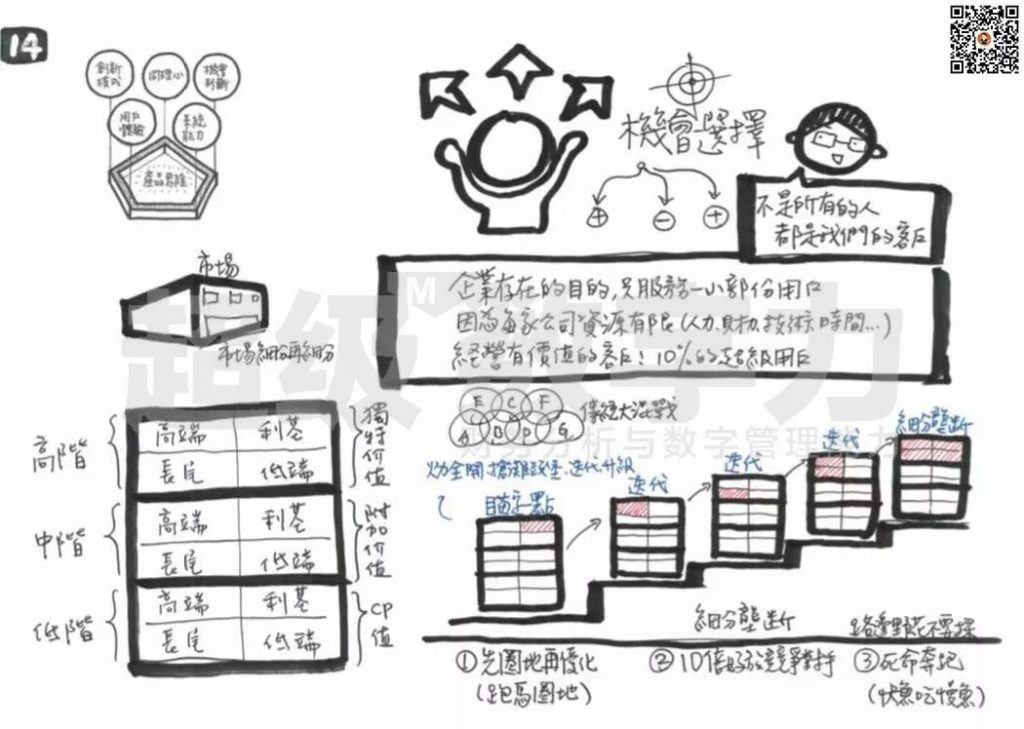 14
創新
模式
同理心
機會
判斷
用戶
體驗
系統
能力
產品思維
機會選擇
不是所有的人
都是我們的客戶
企業存在的目的,只服務一小部份用戶
因為每家公司資源有限(人力,財力,技術,時間...)
經營有價值的客戶!10%的超級用戶
市場
市場細分再細分
M
超级数字力
财务分析与数字管理能力
高階
高端 利基
長尾 低端
獨特价值
中階
高端 利基
長尾 低端
附加价值
低階
高端 利基
長尾 低端
CP值
E C F
A B D G
傳統大混戰
火力全開,搶灘碉堡,迭代升級
瞄定一點
迭代
迭代
迭代
細分壟斷
細分壟斷
路邊野花不要採
①先圈地再優化
(跑馬圈地)
②10倍好於競爭對手
③死命奔跑
(快魚吃慢魚)